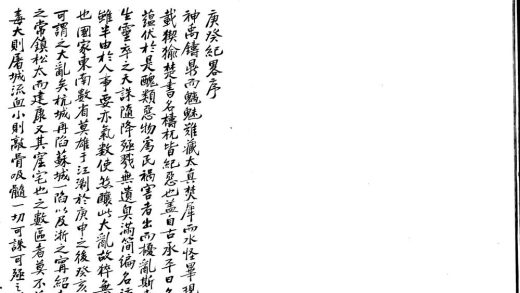 庚癸紀畧序
神禹鑄鼎而魑魅難藏太真焚犀而水怪畢現
載猰㺄楚書名檮杌皆紀惡也盖自古承平日久
蘊伏於是醜類惡物為民禍害者出而擾亂斯
生靈卒之天誅隨降殛戮無遺臭滿簡編名
雖半由於人事要亦氣數使然釀此大亂故粹無
也國家東南數省莫雄于江浙於庚申之後癸亥
可謂之大亂矣杭城再陷蘇城一陷以及浙之甯紹
之常鎮松太而建康又其窟宅也之數區者莫不
毒大則屠城流血小則敲骨吸髓一切可誅可殛之